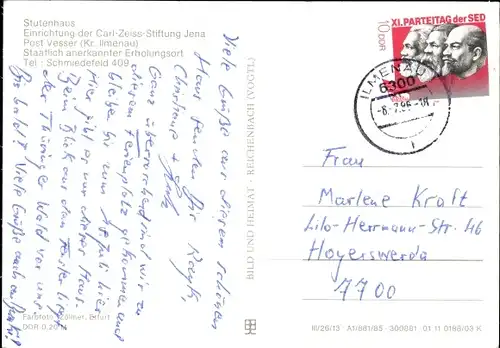 Stutenhaus
Einrichtung der Carl-Zeiss-Stiftung Jena
Post Vesser (Kr. Ilmenau)
Staatlich anerkannter Erholungsort
Tel.: Schmiedefeld 409
Viele Grüße aus diesem schönen
Haus senden Dir
Christiane +
Ganz überrascht sind wir zu
diesem Ferienplatz gekommen und
bleibe bis zum hier
Hier gibt es nur dieses Haus.
Beim Blick aus dem Fenster liegt
der Thüringer Wald vor uns
Bis bald! Viele Grüße auch
Farbfoto: Zöllner, Erfurt
DDR 0,20 M
BILD UND HEIMAT · REICHENBACH (VOGTL)
XI. PARTEITAG der SED
10 DDR
ILMENAU 1
6300
Frau
Marlene Kraft
Lilo-Herrmann-Str. 46
Hoyerswerda
7700
III/26/13 A1/881/85 300681 01 11 0188/03 K